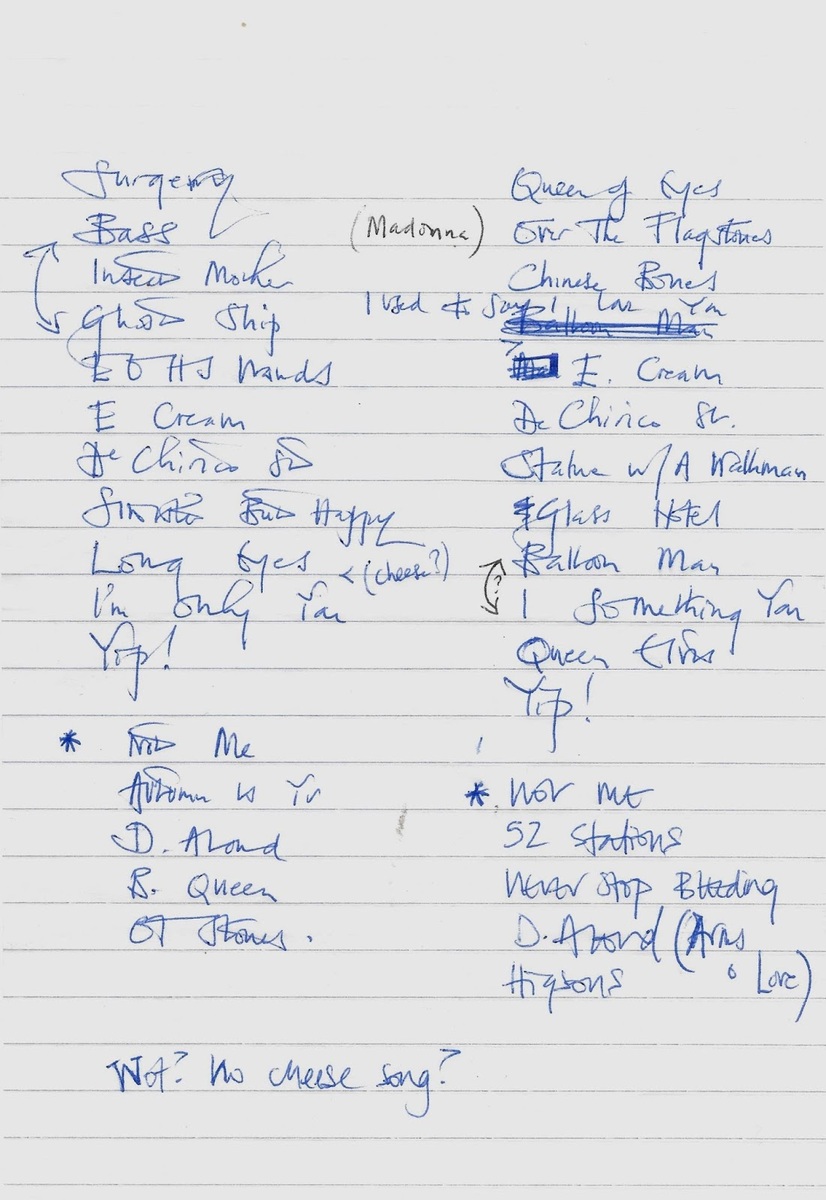 Surgery
Bass
Insect Mother
Ghost Ship
E O HJ Hands
E Cream
De Chirico St
Sinister But Happy
Long Eyes < (cheese?)
I'm only You
Yip!
* Not Me
Autumn is Yr
D. Around
B. Queen
OT Stones.
Queen of Eyes
(Madonna) Over The Flagstones
Chinese Bones
I used to Say I Love You
Balloon Man
E. Cream
De Chirico St.
Statue w/ A Walkman
Glass Hotel
Balloon Man
I Something You
Queen Elvis
Yip!
* NOT ME
52 Stations
Never Stop Bleeding
D. Around (Arms
o Love)
Higsons
Wot? No cheese song?